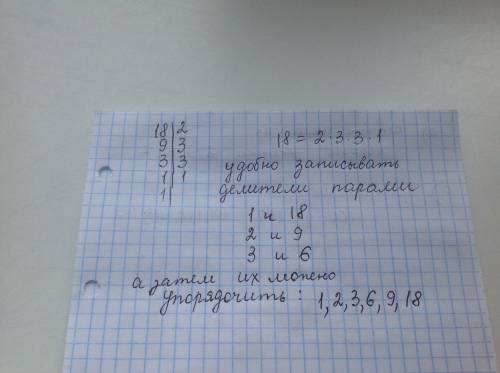 18|2
9|3
3|3
1|1
1|
18 = 2·3·3·1
удобно записывать
делители парами
1 и 18
2 и 9
3 и 6
а затем их можно
упорядочить: 1, 2, 3, 6, 9, 18